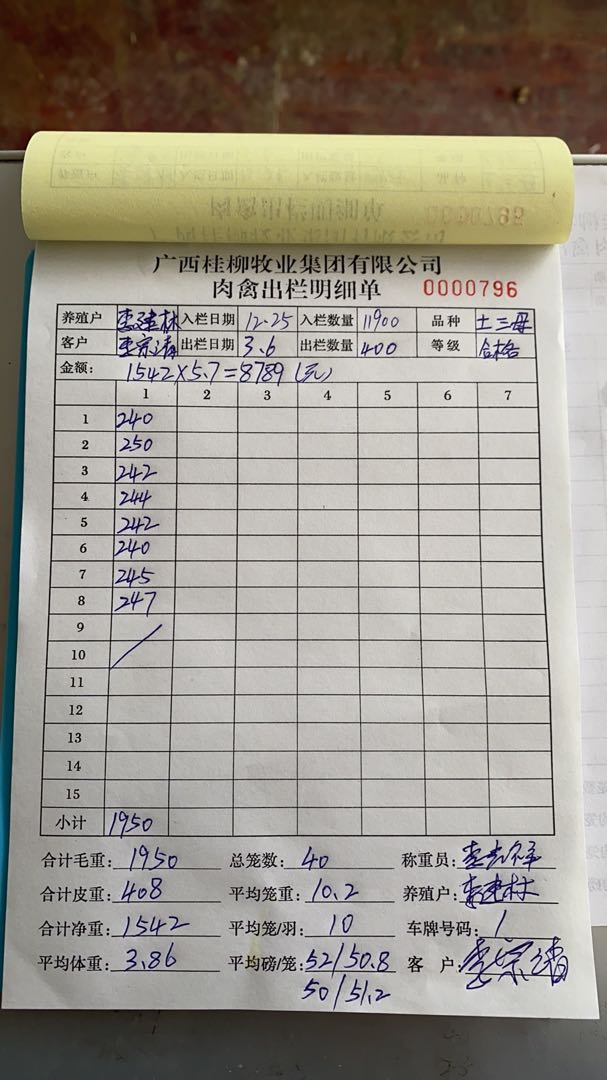 广西桂柳牧业集团有限公司
肉禽出栏明细单 0000796
养殖户 李建林 入栏日期 12.25 入栏数量 11900 品种 土三母
客户 李宗清 出栏日期 3.6 出栏数量 400 等级 合格
金额: 1542×5.7=8789(元)
1 2 3 4 5 6 7
1 240
2 250
3 242
4 244
5 242
6 240
7 245
8 247
9
10
11
12
13
14
15
小计 1950
合计毛重: 1950 总笼数: 40 称重员:
合计皮重: 408 平均笼重: 10.2 养殖户: 李建林
合计净重: 1542 平均笼/羽: 10 车牌号码: /
平均体重: 3.86 平均磅/笼: 52/50.8 客户: 李宗清
50/51.2